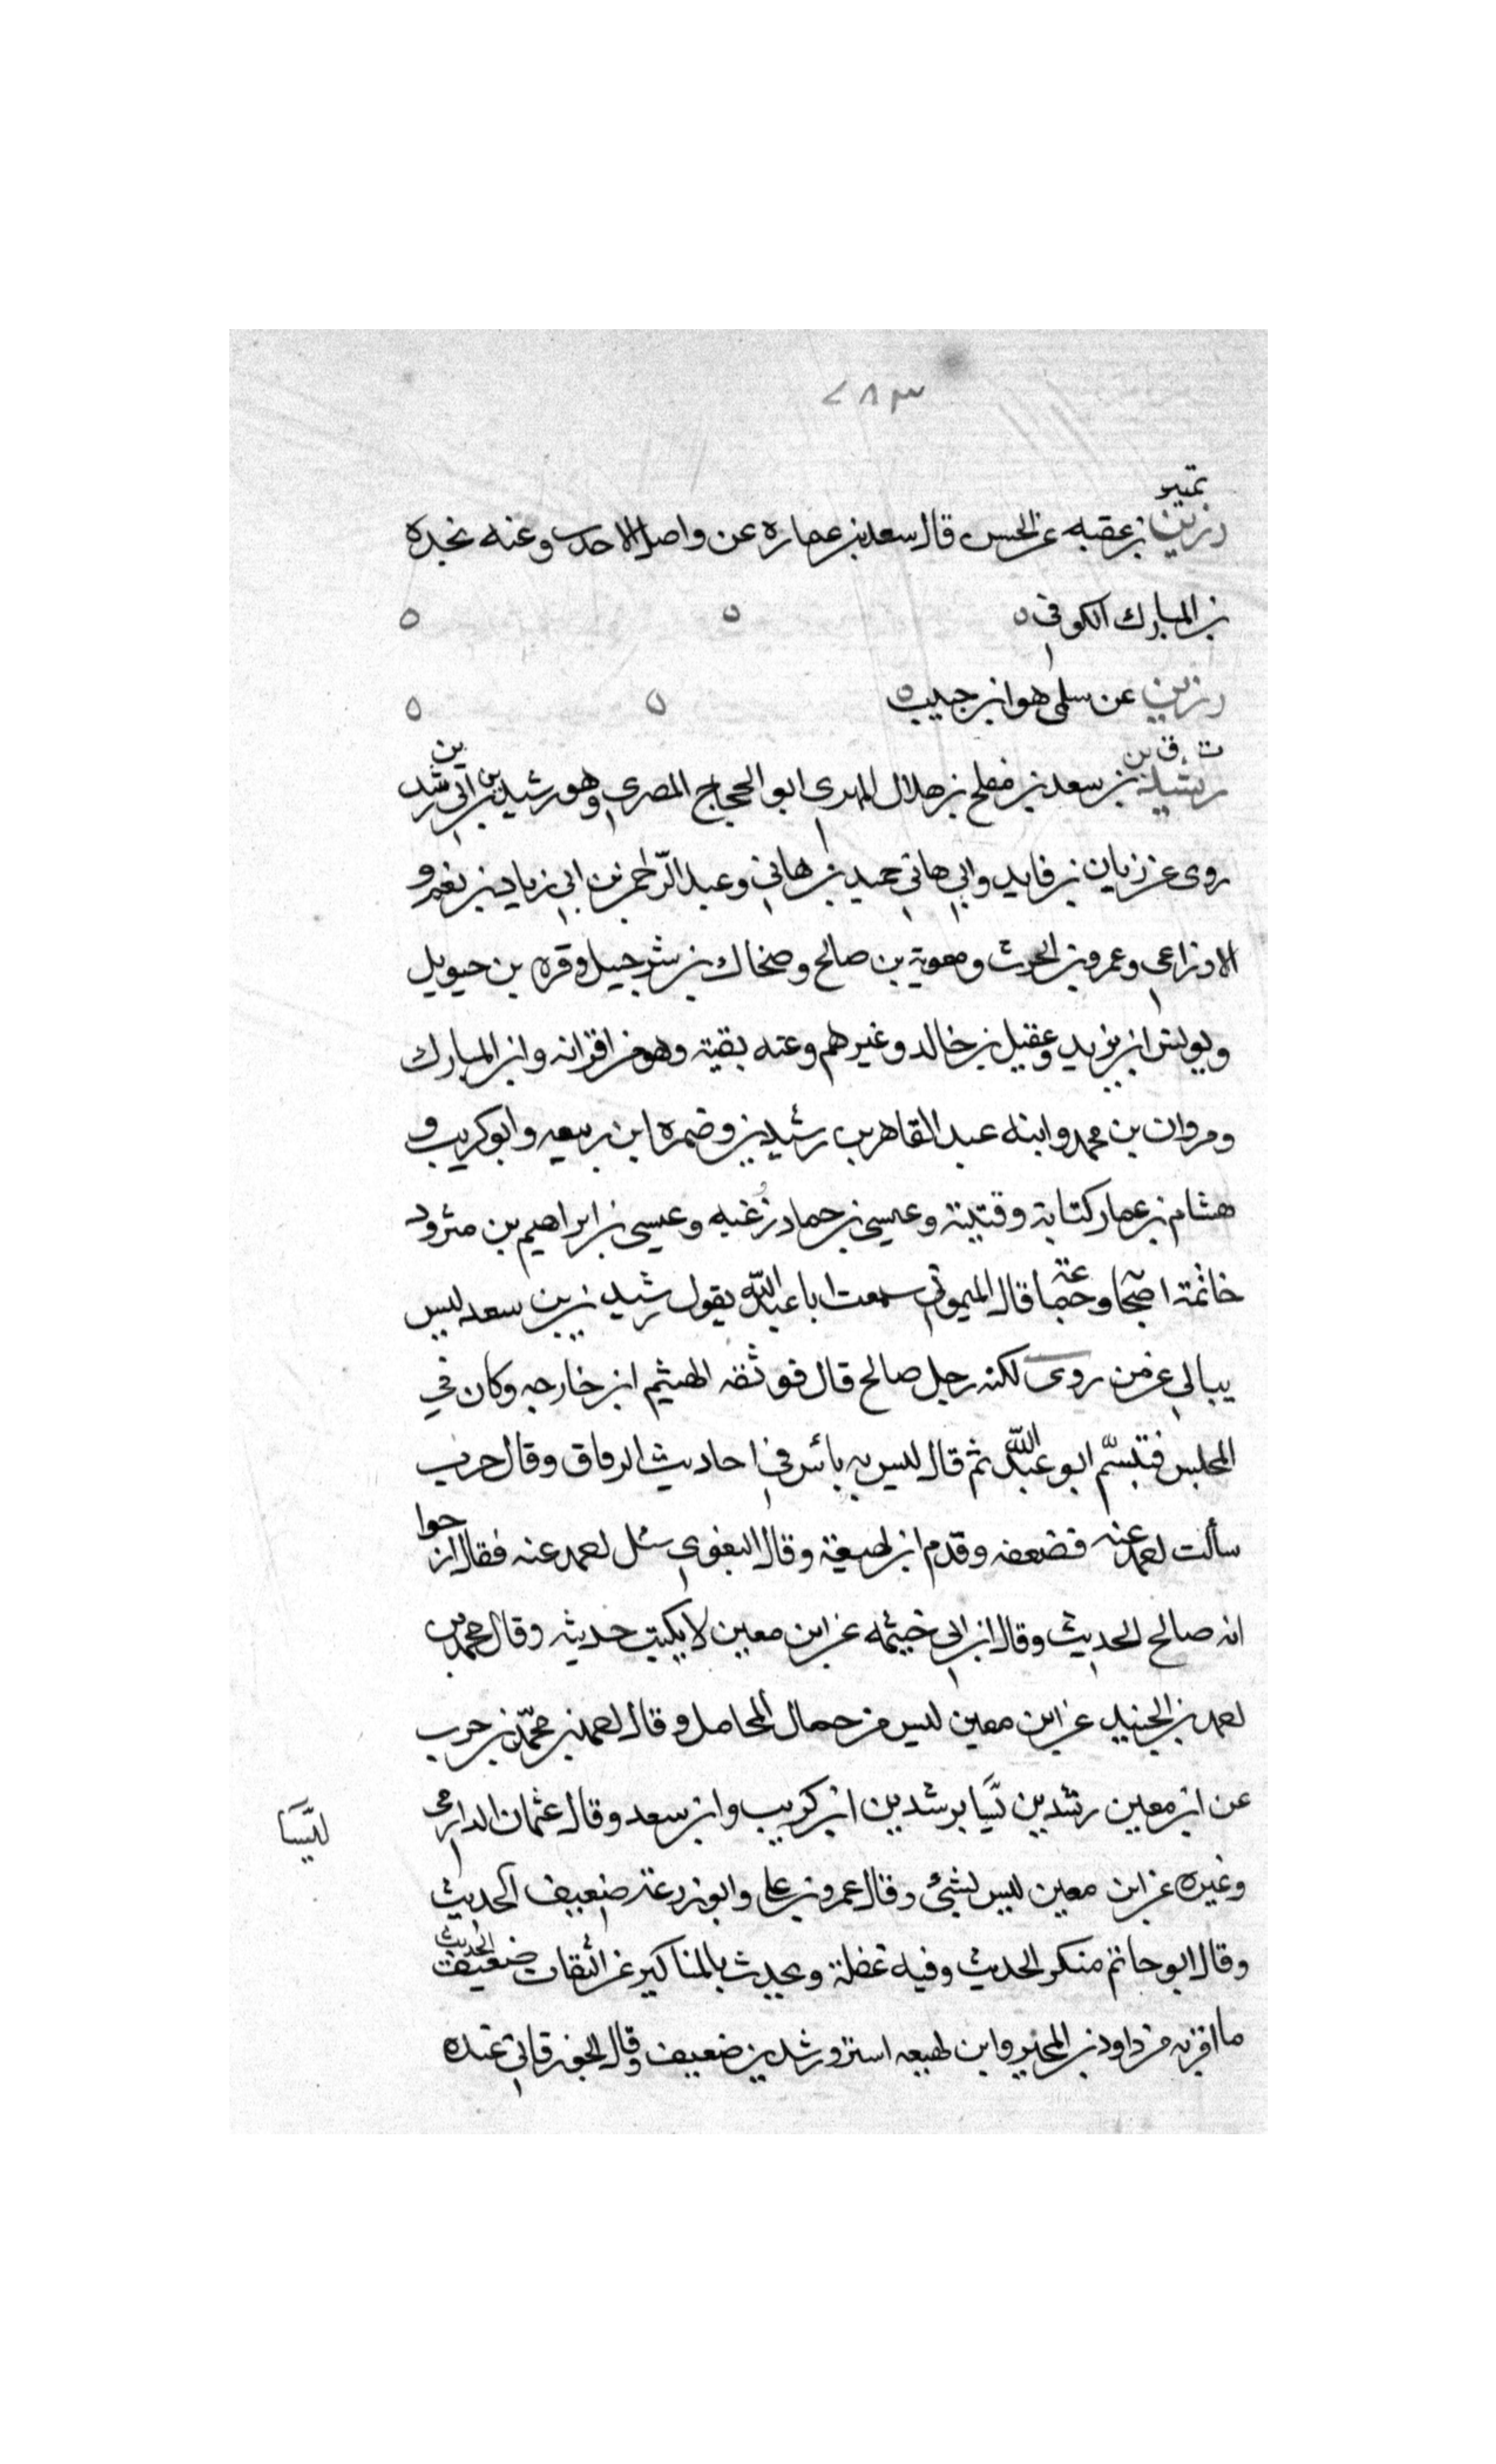 ٢٨٣
تمييز
رزين بن عقبه عن الحسن قال سعد بن عماره عن واصل الاحدب وعنه نجده
بن المبارك الكوفي ه
رزين عن سلمى هو ابن حبيب ه
ت ق
رشدين بن سعد بن مفلح بن هلال المهرى ابو الحجاج المصري وهو رشدين بن ابي رشدين
روى عن زبان بن فايد وابي هاني حميد بن هاني وعبد الرحمن بن ابي زياد بن نعم و
الاوزاعي وعمرو بن الحرث ومعوية بن صالح وضحاك بن شرحبيل وقره بن حيويل
ويونس ابن يزيد وعقيل بن خالد وغيرهم وعنه بقية وهو من اقرانه وابن المبارك
ومروان بن محمد وابنه عبد القاهر بن رشدين وضمره ابن ربيعه وابو كريب و
هشام بن عمار كتابة وقتيبة وعيسى بن حماد زغبه وعيسى بن ابراهيم بن مثرود
خاتمة اصحابه وجماعة قال الميموني سمعت ابا عبد الله يقول رشدين بن سعد ليس
يبالي عن من روى لكنه رجل صالح قال فوثقه الهيثم ابن خارجه وكان في
المجلس فتبسم ابو عبد الله ثم قال ليس به بائس في احاديث الرقاق وقال حرب
سألت احمد عنه فضعفه وقدم ابن لهيعة وقال البغوي سئل احمد عنه فقال ارجوا
انه صالح الحديث وقال ابن ابي خيثمه عن ابن معين لا يكتب حديثه وقال محمد بن
احمد بن الجنيد عن ابن معين ليس من حمال المحامل وقال احمد بن محمد بن حرب
عن ابن معين رشدين ليسا برشدين ابن كريب وابن سعد وقال عثمان الدارمي
ليسا
وغيره عن ابن معين ليس بشئ وقال عمرو بن علي وابو زرعة ضعيف الحديث
وقال ابو حاتم منكر الحديث وفيه غفلة ويحدث بالمناكير عن الثقات ضعيف الحديث
ما اقربه من داود بن المحبر وابن لهيعه استر ورشدين ضعيف وقال الجوزقاني عنده